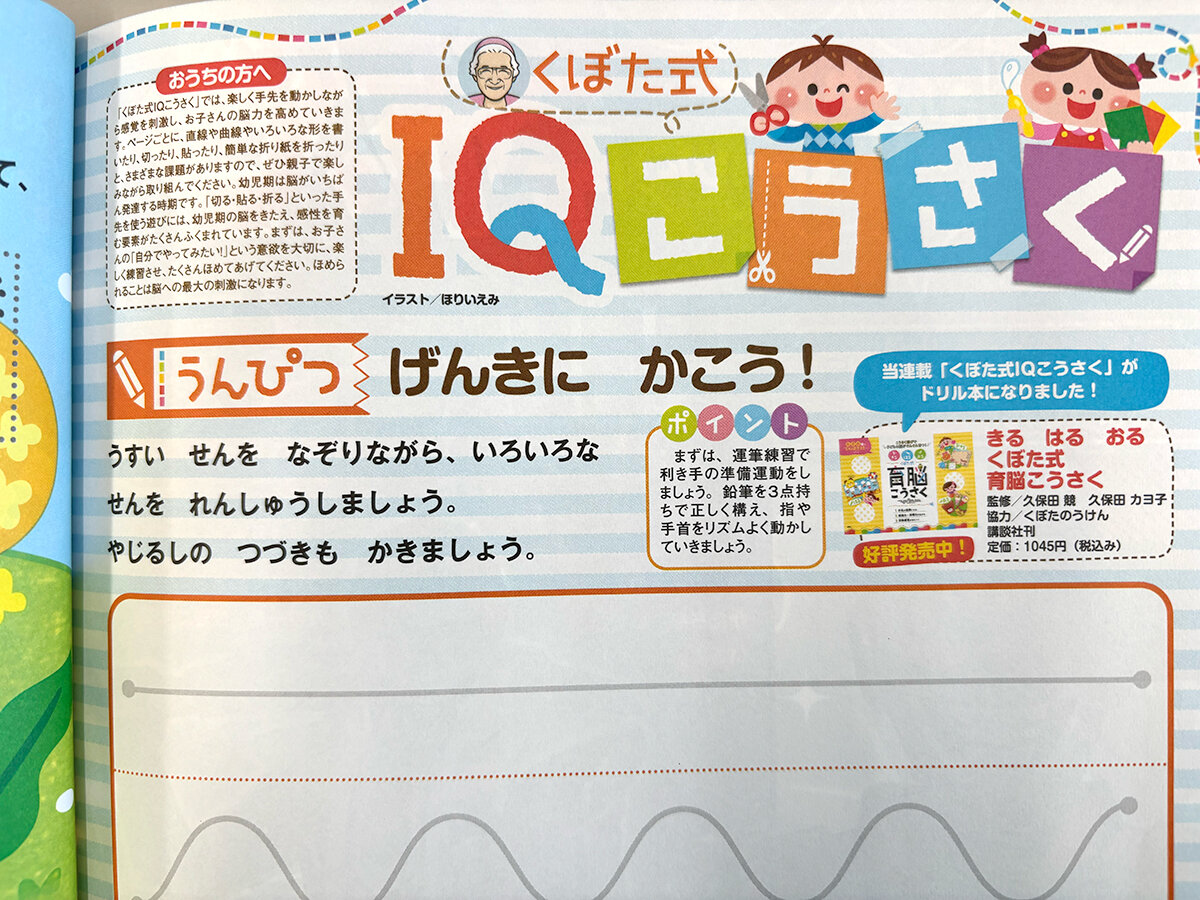 くぼた式
IQこうさく
イラスト/ほりいえみ
おうちの方へ
「くぼた式IQこうさく」では、楽しく手先を動かしなが
ら感覚を刺激し、お子さんの脳力を高めていきま
す。ページごとに、直線や曲線やいろいろな形を書
いたり、切ったり、貼ったり、簡単な折り紙を折ったり
と、さまざまな課題がありますので、ぜひ親子で楽し
みながら取り組んでください。幼児期は脳がいちば
ん発達する時期です。「切る・貼る・折る」といった手
先を使う遊びには、幼児期の脳をきたえ、感性を育
む要素がたくさんふくまれています。まずは、お子さ
んの「自分でやってみたい!」という意欲を大切に、楽
しく練習させ、たくさんほめてあげてください。ほめら
れることは脳への最大の刺激になります。
うんぴつ
げんきに かこう!
うすい せんを なぞりながら、いろいろな
せんを れんしゅうしましょう。
やじるしの つづきも かきましょう。
ポイント
まずは、運筆練習で
利き手の準備運動をし
ましょう。鉛筆を3点持
ちで正しく構え、指や
手首をリズムよく動かし
ていきましょう。
当連載「くぼた式IQこうさく」が
ドリル本になりました!
育脳
こうさく
好評発売中!
きる はる おる
くぼた式
育脳こうさく
監修/久保田 競 久保田 カヨ子
協力/くぼたのうけん
講談社刊
定価:1045円(税込み)
て、